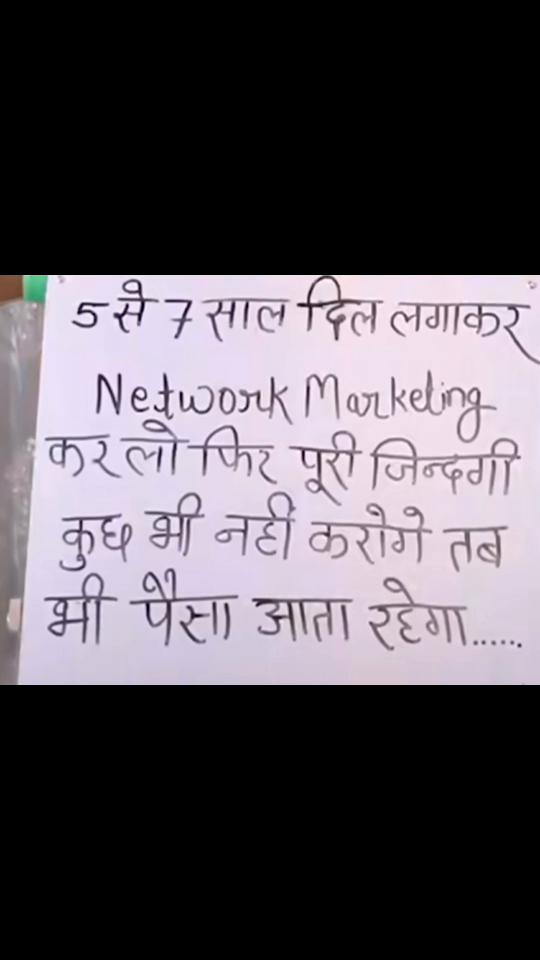 5 से 7 साल दिल लगाकर
Network Marketing
कर लो फिर पूरी जिन्दगी
कुछ भी नहीं करोगे तब
भी पैसा आता रहेगा......